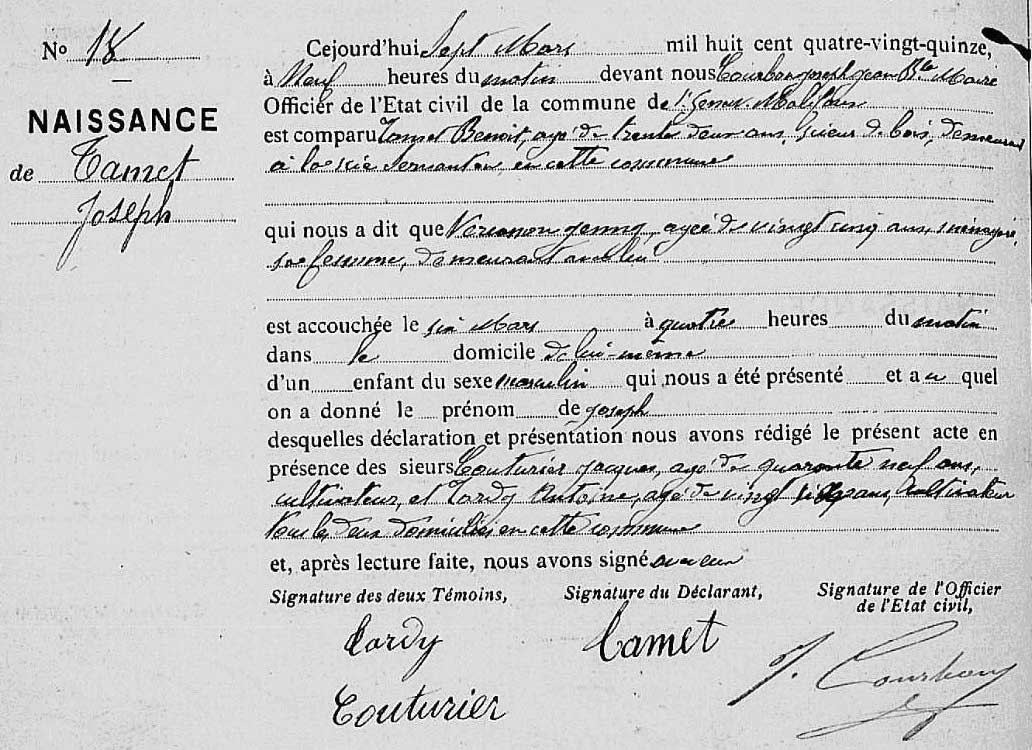 No 18
NAISSANCE
de Tamet
Joseph
Cejourd'hui Sept Mars mil huit cent quatre-vingt-quinze,
à Neuf heures du matin devant nous Courbon Joseph Jean Bte Maire
Officier de l'Etat civil de la commune de St Genest-Malifaux
est comparu Tamet Benoit, agé de trente deux ans, Scieur de bois, demeurant
à la scie en cette commune
qui nous a dit que Jenny, agée de vingt cinq ans, ménagère,
sa femme, demeurant au lieu
est accouchée le six Mars à quatre heures du matin
dans le domicile de lui-même
d'un enfant du sexe masculin qui nous a été présenté et au quel
on a donné le prénom de Joseph
desquelles déclaration et présentation nous avons rédigé le présent acte en
présence des sieurs Couturier Jacques, agé de quarante neuf ans,
cultivateur, et Tardy Antoine, agé de vingt ans, cultivateur
tous les deux domiciliés en cette commune
et, après lecture faite, nous avons signé avec eux
Signature des deux Témoins, Signature du Déclarant, Signature de l'Officier
de l'Etat civil,
Tardy Tamet J. Courbon
Couturier